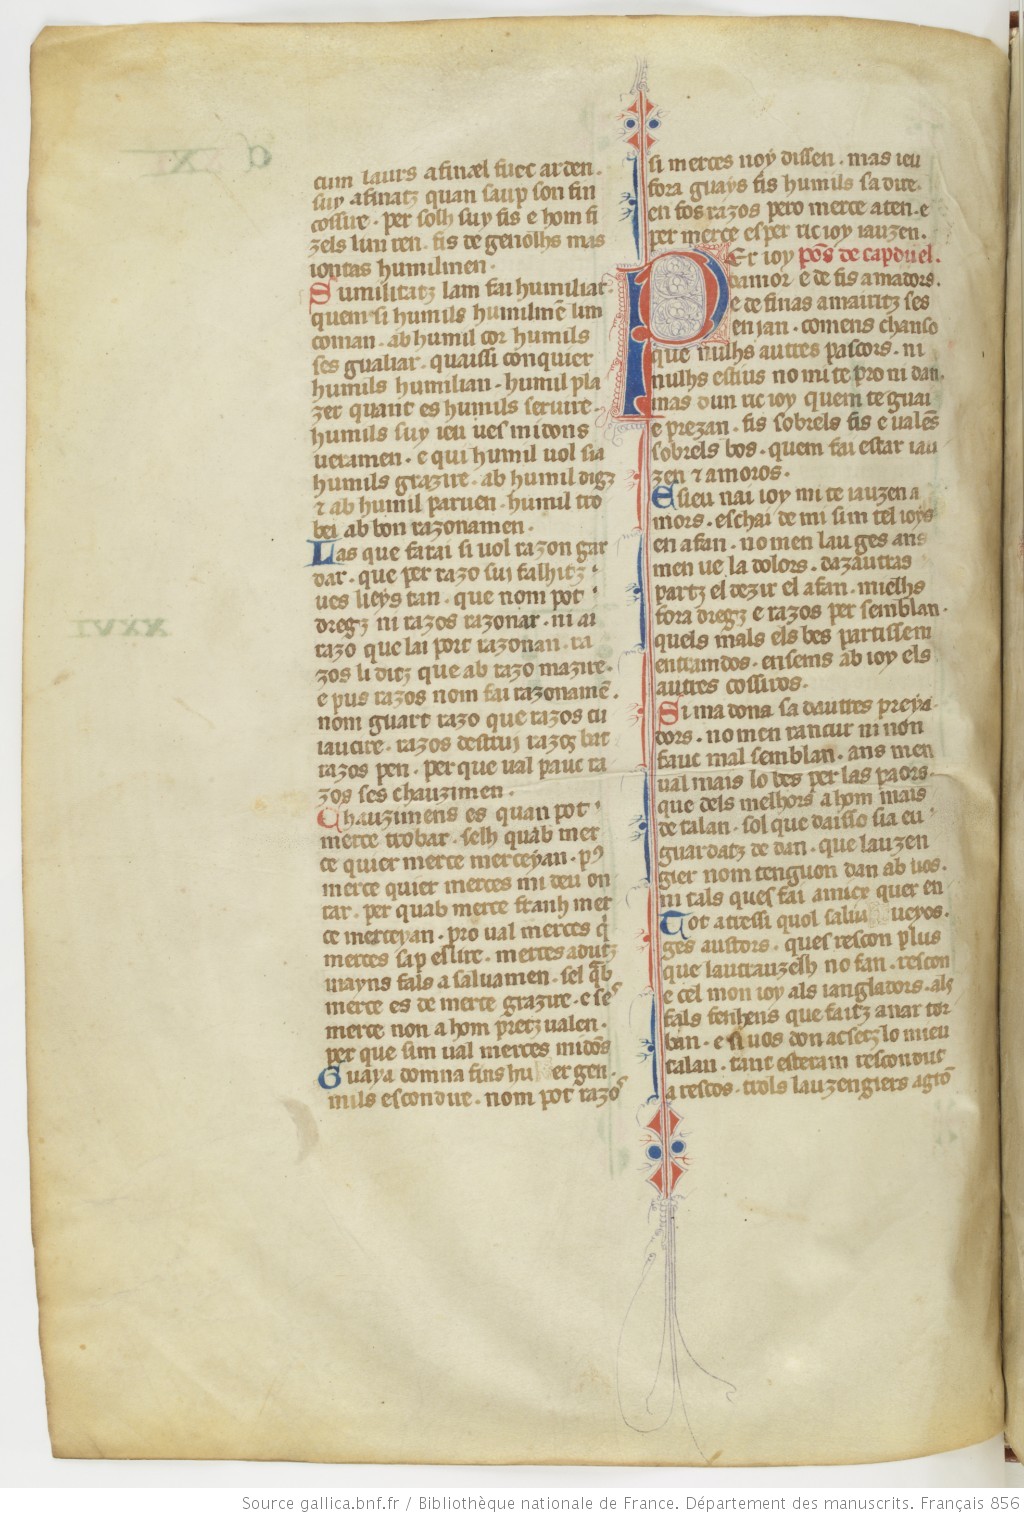 cum laurs afinael fuec arden.
suy. afinatz quan saup son fin
cossire. per solh suy fis e hom fi
zels lun ren. fis de genolhs mas
iontas humilmen.
Sumilitatz lam fai humiliar.
quem si humils humilmē lim
coman. ab humil cor humils
ses gualiar. quaissi conquier
humils humilian. humil pla
zer quant es humils seruire.
humils suy ieu ues midons
ueramen. e qui humil uol sia
humils grazire. ab humil digz
⁊ ab humil paruen. humil tro
bei ab bon razonamen.
Las que farai si uol razon gar
dar. que per razo sui falhitz
ues lieys tan. que nom pot
dregz ni razos razonar. ni ai
razo que lai port razonan. ra
zos li ditz que ab razo mazire.
e pus razos nom fai razonamē.
nom guart razo que razos cu
iaucire. razos destrui razos bat
razos pen. per que ual pauc ra
zos ses chauzimen.
Chauzimens es quan pot
merce trobar. selh quab mer
ce quier merce merceyan. p9
merce quier merces mi deu on
rar. per quab merce franh mer
ce merceyan. pro ual merces q̄
merces sap eslire. merces adutz
mayns fals a saluamen. sel q̄b
merce es de merce grazire. e ses
merce non a hom pretz ualen.
per que sim ual merces midōs
Guaya domna fins hu er gen.
mils escondue. nom pot razos
si merces noy dissen. mas ieu
fora guays fis humils sa dire.
en sos razos pero merce aten. e
per merce esper ric ioy iauzen.
Er ioy pōs de capduel.
damor e de fis amadors.
e de finas amairitz ses
en ian. comens chanso
que nulhs autres pascors. ni
nulhs estius no mi te pro ni dan.
mas dun ric ioy quem te guai
e prezan. fis sobrels fis e ualēs
sobrels bos. quem fai estar iau
zen ⁊ amoros.
E sieu nai ioy mi te iauzen a
mors. eschai de mi sim tel ioys
en afan. no men lau ges ans
men ue la dolors. dazautras
partz el dezir el afan. mielhs
fora dregz e razos per semblan.
quels mals els bes partissem
entramdos. ensems ab ioy els
autres cossiros.
Si ma dona sa dautres preya
dors. no men rancur ni non
fauc mal semblan. ans men
ual mais lo bes per las paors.
que dels melhors a hom mais
de talan. sol que daisso sia eu
guardatz de dan. que lauzen
gier nom tenguon dan ab uos.
ni tals ques fai amicx quer en
Tot atressi quol salua ueyos.
ges austors. ques rescon plus
que lautrauzelh no fan. rescon
e cel mon ioy als iangladors. als
fals fenhens que faitz anar tor
ban. e si uos don acsetz lo mieu
talan. tant esteram rescondut
a rescos. trols lauzengiers agrō